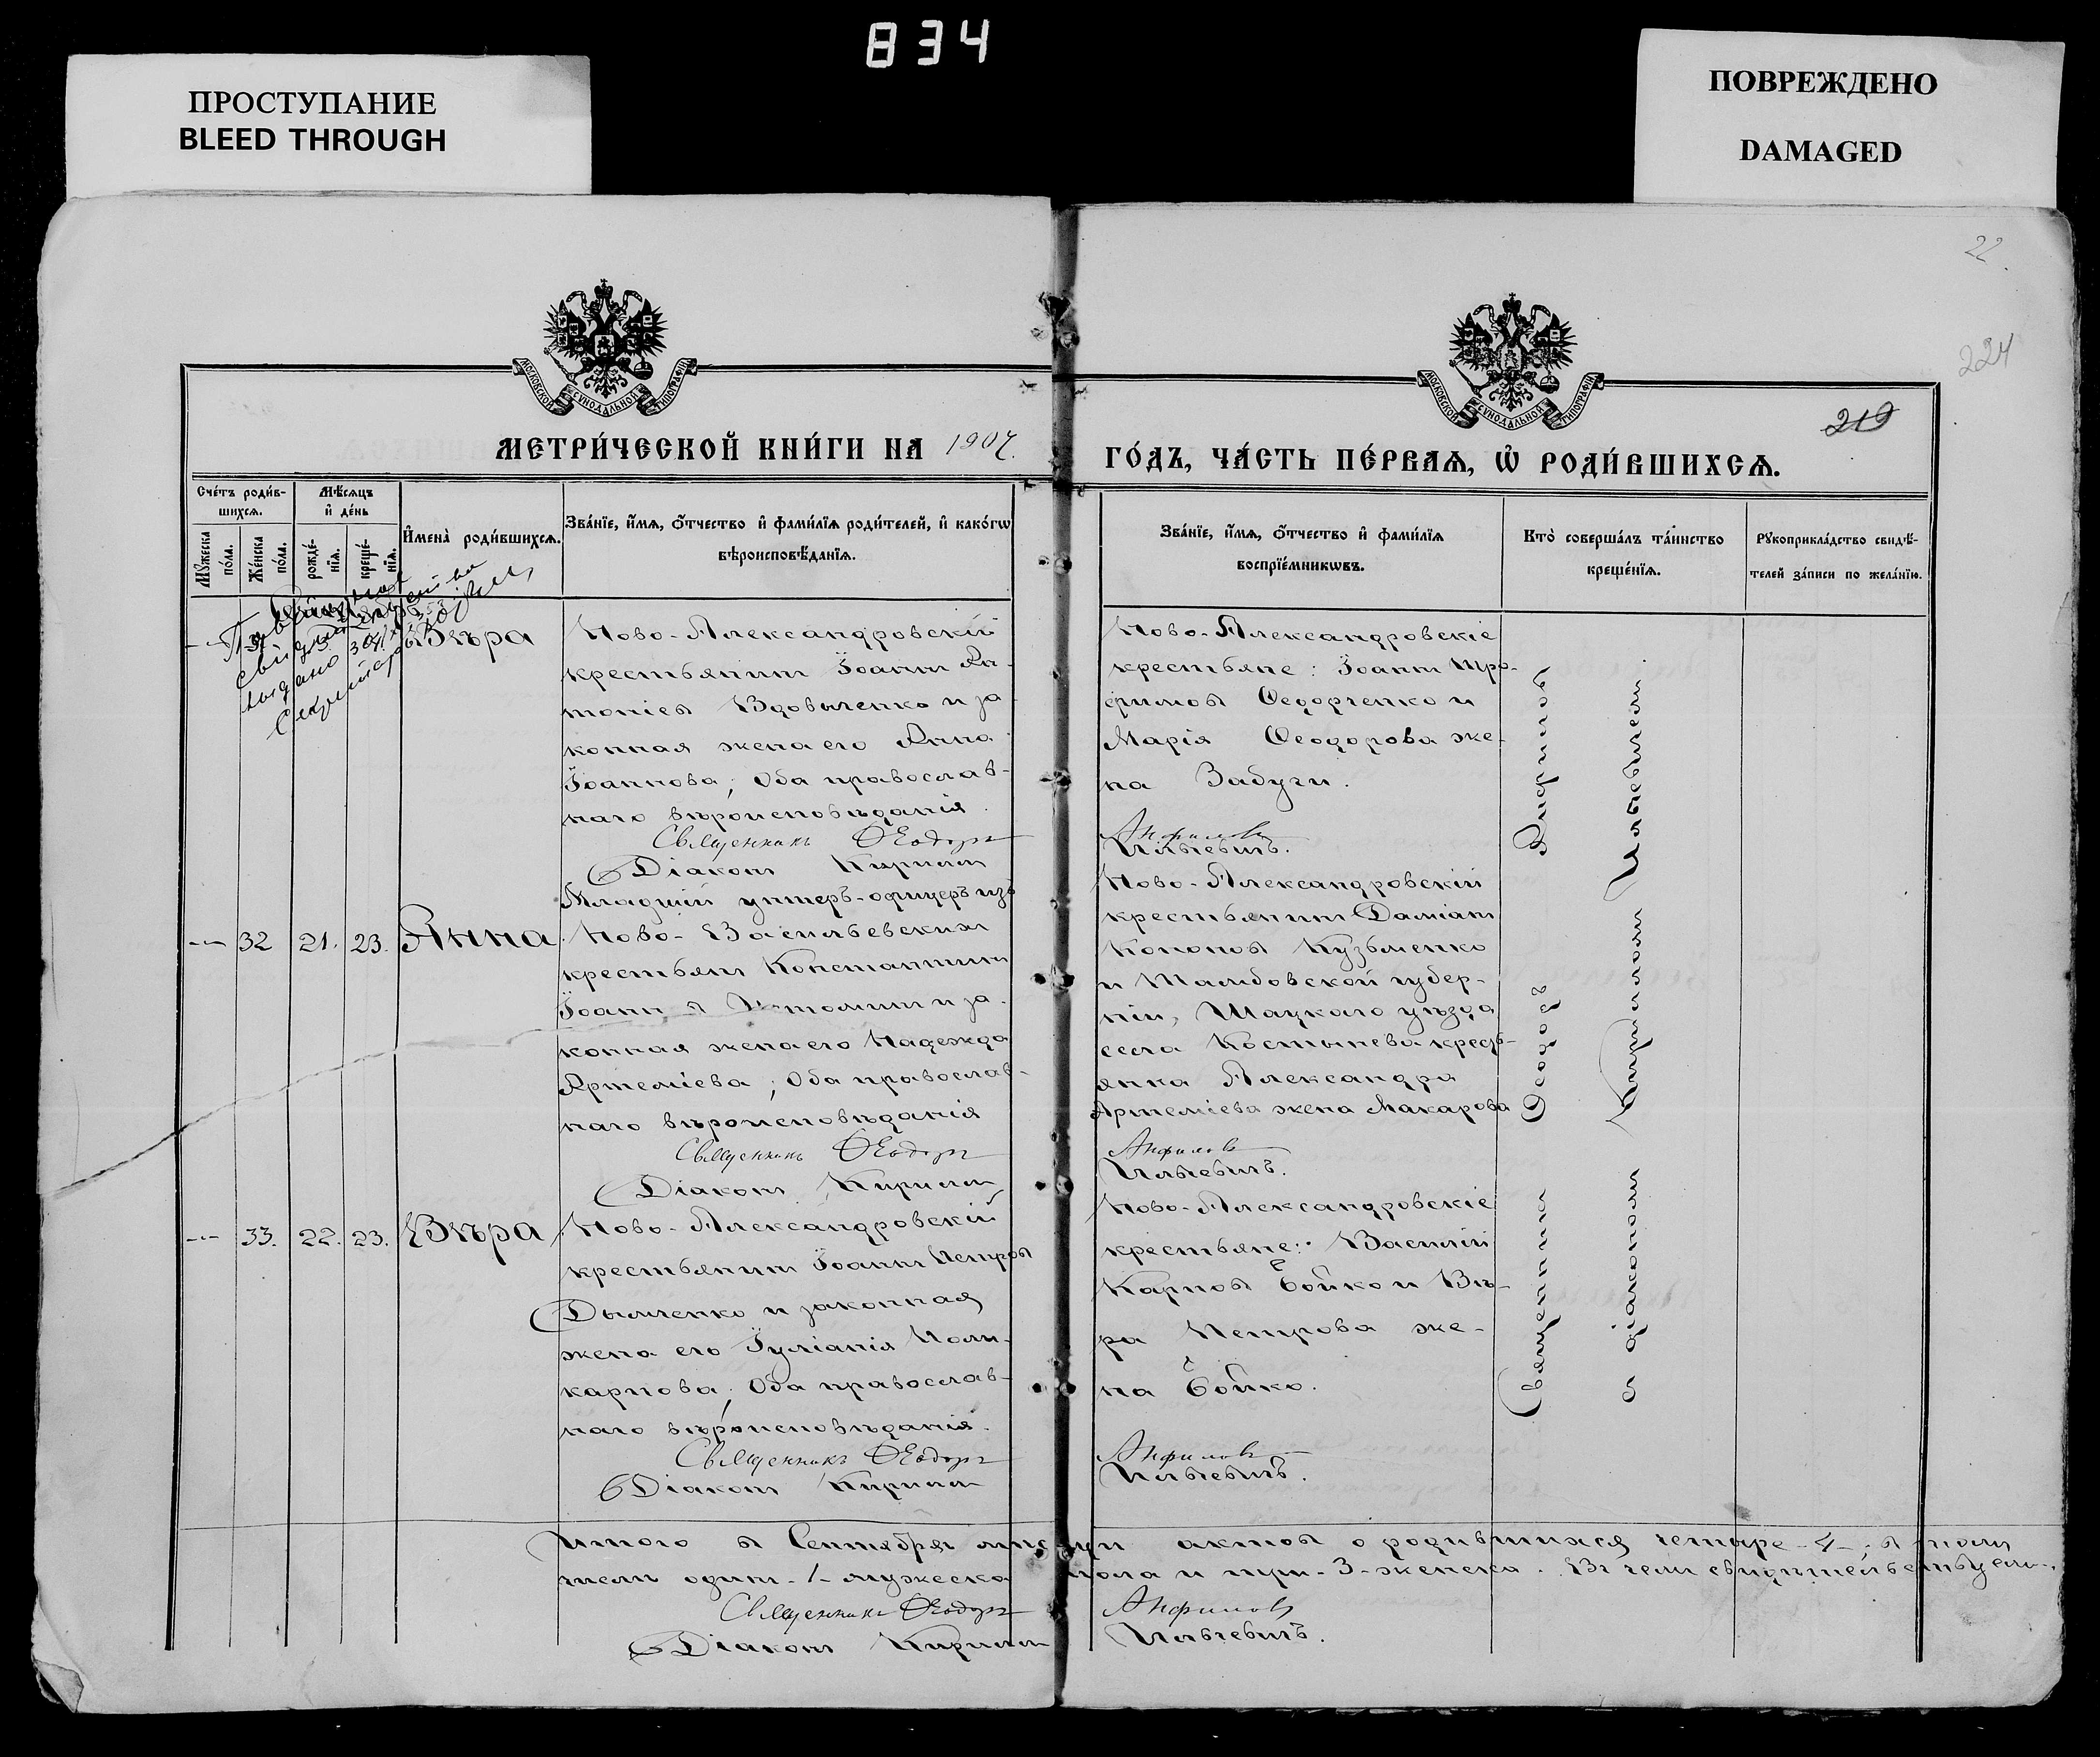 834
ПРОСТУПАНИЕ
BLEED THROUGH
ПОВРЕЖДЕНО
DAMAGED
22
224
219
МОСКОВСКОЙ СѴНОДАЛЬНОЙ ТИПОГРАФІИ
МОСКОВСКОЙ СѴНОДАЛЬНОЙ ТИПОГРАФІИ
МЕТРИ́ЧЕСКОЙ КНИ́ГИ НА 1907. ГО́ДЪ, ЧА́СТЬ ПЕ́РВАѦ, Ѡ҆ РОДИ́ВШИХСѦ.
Сче́тъ роди́в-
шихсѧ.
Мꙋ́жеска по́ла.
Же́нска по́ла.
Мѣ́сѧцъ
и҆ де́нь
рожде́-нїѧ.
креще́-нїѧ.
И҆мена̀ роди́вшихсѧ.
Зва́нїе, и҆́мѧ, ѻ҆́тчество и҆ фами́лїѧ роди́телей, и҆ како́гѡ
вѣроисповѣ́данїѧ.
Зва́нїе, и҆́мѧ, ѻ҆́тчество и҆ фами́лїѧ
воспрїе́мникѡвъ.
Кто̀ соверша́лъ та́инство
креще́нїѧ.
Рꙋкоприкла́дство свидѣ́-
телей за́писи по жела́нїю.
Вѣра
Ново-Александровскій
крестьянинъ Іоаннъ Ан-
тоніевъ Вдовиченко и за-
конная жена его Анна
Іоаннова; Оба православ-
наго вѣроисповѣданія.
Священникъ Ѳеодоръ
Діаконъ Кириллъ
Ново-Александровскіе
крестьяне: Іоаннъ Тро-
фимовъ Ѳедорченко и
Марія Ѳеодорова же-
на Забуги.
Анфиловъ
Ильевичъ.
-"- 32 21. 23. Анна.
Младшій унтеръ-офицеръ изъ
Ново-Васильевскихъ
крестьянъ Константинъ
Іоанн въ Истоминъ и за-
конная жена его Надежда
Артеміева; Оба православ-
наго вѣроисповѣданія
Священникъ Ѳеодоръ
Діаконъ Кириллъ
Ново-Александровскій
крестьянинъ Даміанъ
Кононовъ Кузьменко
и Тамбовской губер-
ніи, Шацкаго уѣзда
села крест-
янка Александра
Артеміева жена Макарова
Анфиловъ
Ильевичъ.
-"- 33. 22. 23. Вѣра
Ново-Александровскій
крестьянинъ Іоаннъ Петровъ
Дымченко и законная
жена его Іуліанія Поли-
карпова; Оба православ-
наго вѣроисповѣданія.
Священникъ Ѳеодоръ
Діаконъ Кириллъ
Ново-Александровскіе
крестьяне: Василій
Карповъ Бойко и Вѣ-
ра Петрова же-
на Бойко.
Анфиловъ
Ильевичъ.
Священникъ Ѳеодоръ Анфиловъ
съ діакономъ Кирилломъ Ильевичемъ.
Итого въ Сентябрѣ мѣсяцѣ актовъ о родившихся четыре-4-; въ томъ
числѣ одинъ-1-мужеска пола и три-3-женска. Въ чемъ свидѣтельствуемъ.
Священникъ Ѳеодоръ Анфиловъ
Діаконъ Кириллъ Ильевичъ.